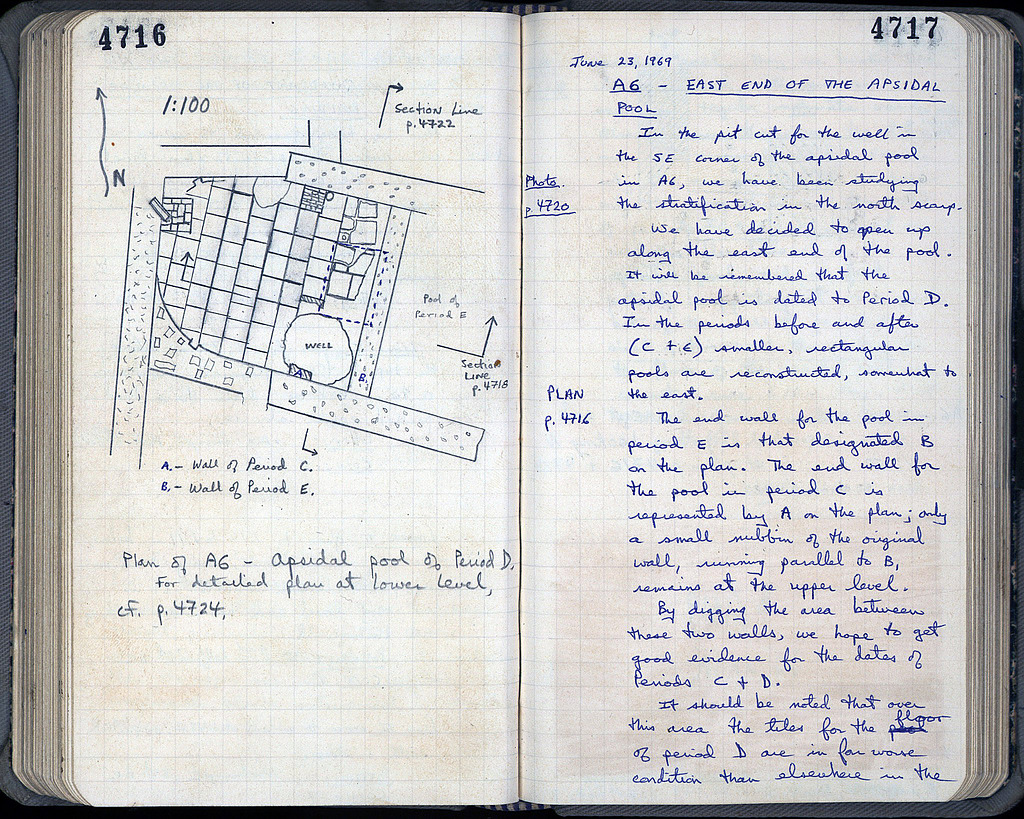 4716
1:100
Section Line
p. 4722
N
Pool of
Period E
WELL
A
B
Section
Line
p. 4718
A. - Wall of Period C.
B. - Wall of Period E.
Plan of A6 - Apsidal pool of Period D.
For detailed plan at lower level,
cf. p. 4724.
4717
June 23, 1969
A6 - EAST END OF THE APSIDAL
POOL
In the pit cut for the well in
the SE corner of the apsidal pool
Photo.
in A6, we have been studying
p. 4720
the stratification in the north scarp.
We have decided to open up
along the east end of the pool.
It will be remembered that the
apsidal pool is dated to Period D.
In the periods before and after
(C + E) smaller, rectangular
pools are reconstructed, somewhat to
PLAN
the east.
p. 4716
The end wall for the pool in
period E is that designated B
on the plan. The end wall for
the pool in period C is
represented by A on the plan; only
a small nubbin of the original
wall, running parallel to B,
remains at the upper level.
By digging the area between
these two walls, we hope to get
good evidence for the dates of
Periods C + D.
It should be noted that over
this area the tiles for the pool floor
of period D are in far worse
condition than elsewhere in the